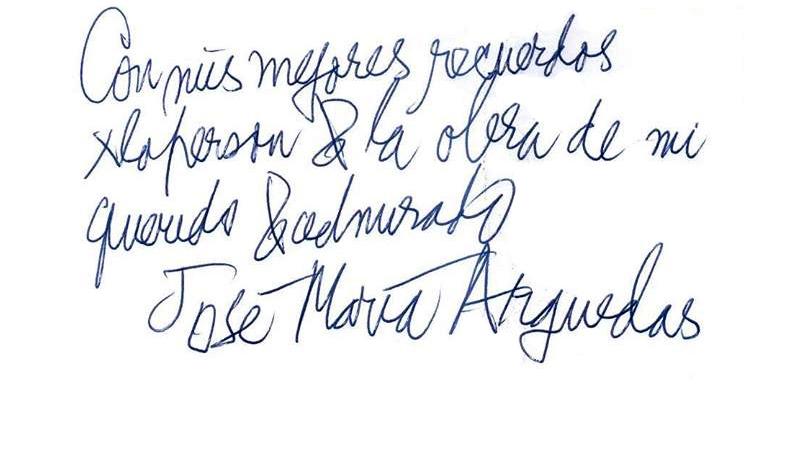 Con mis mejores recuerdos
x la person & la obra de mi
querido & admirado
José María Arguedas